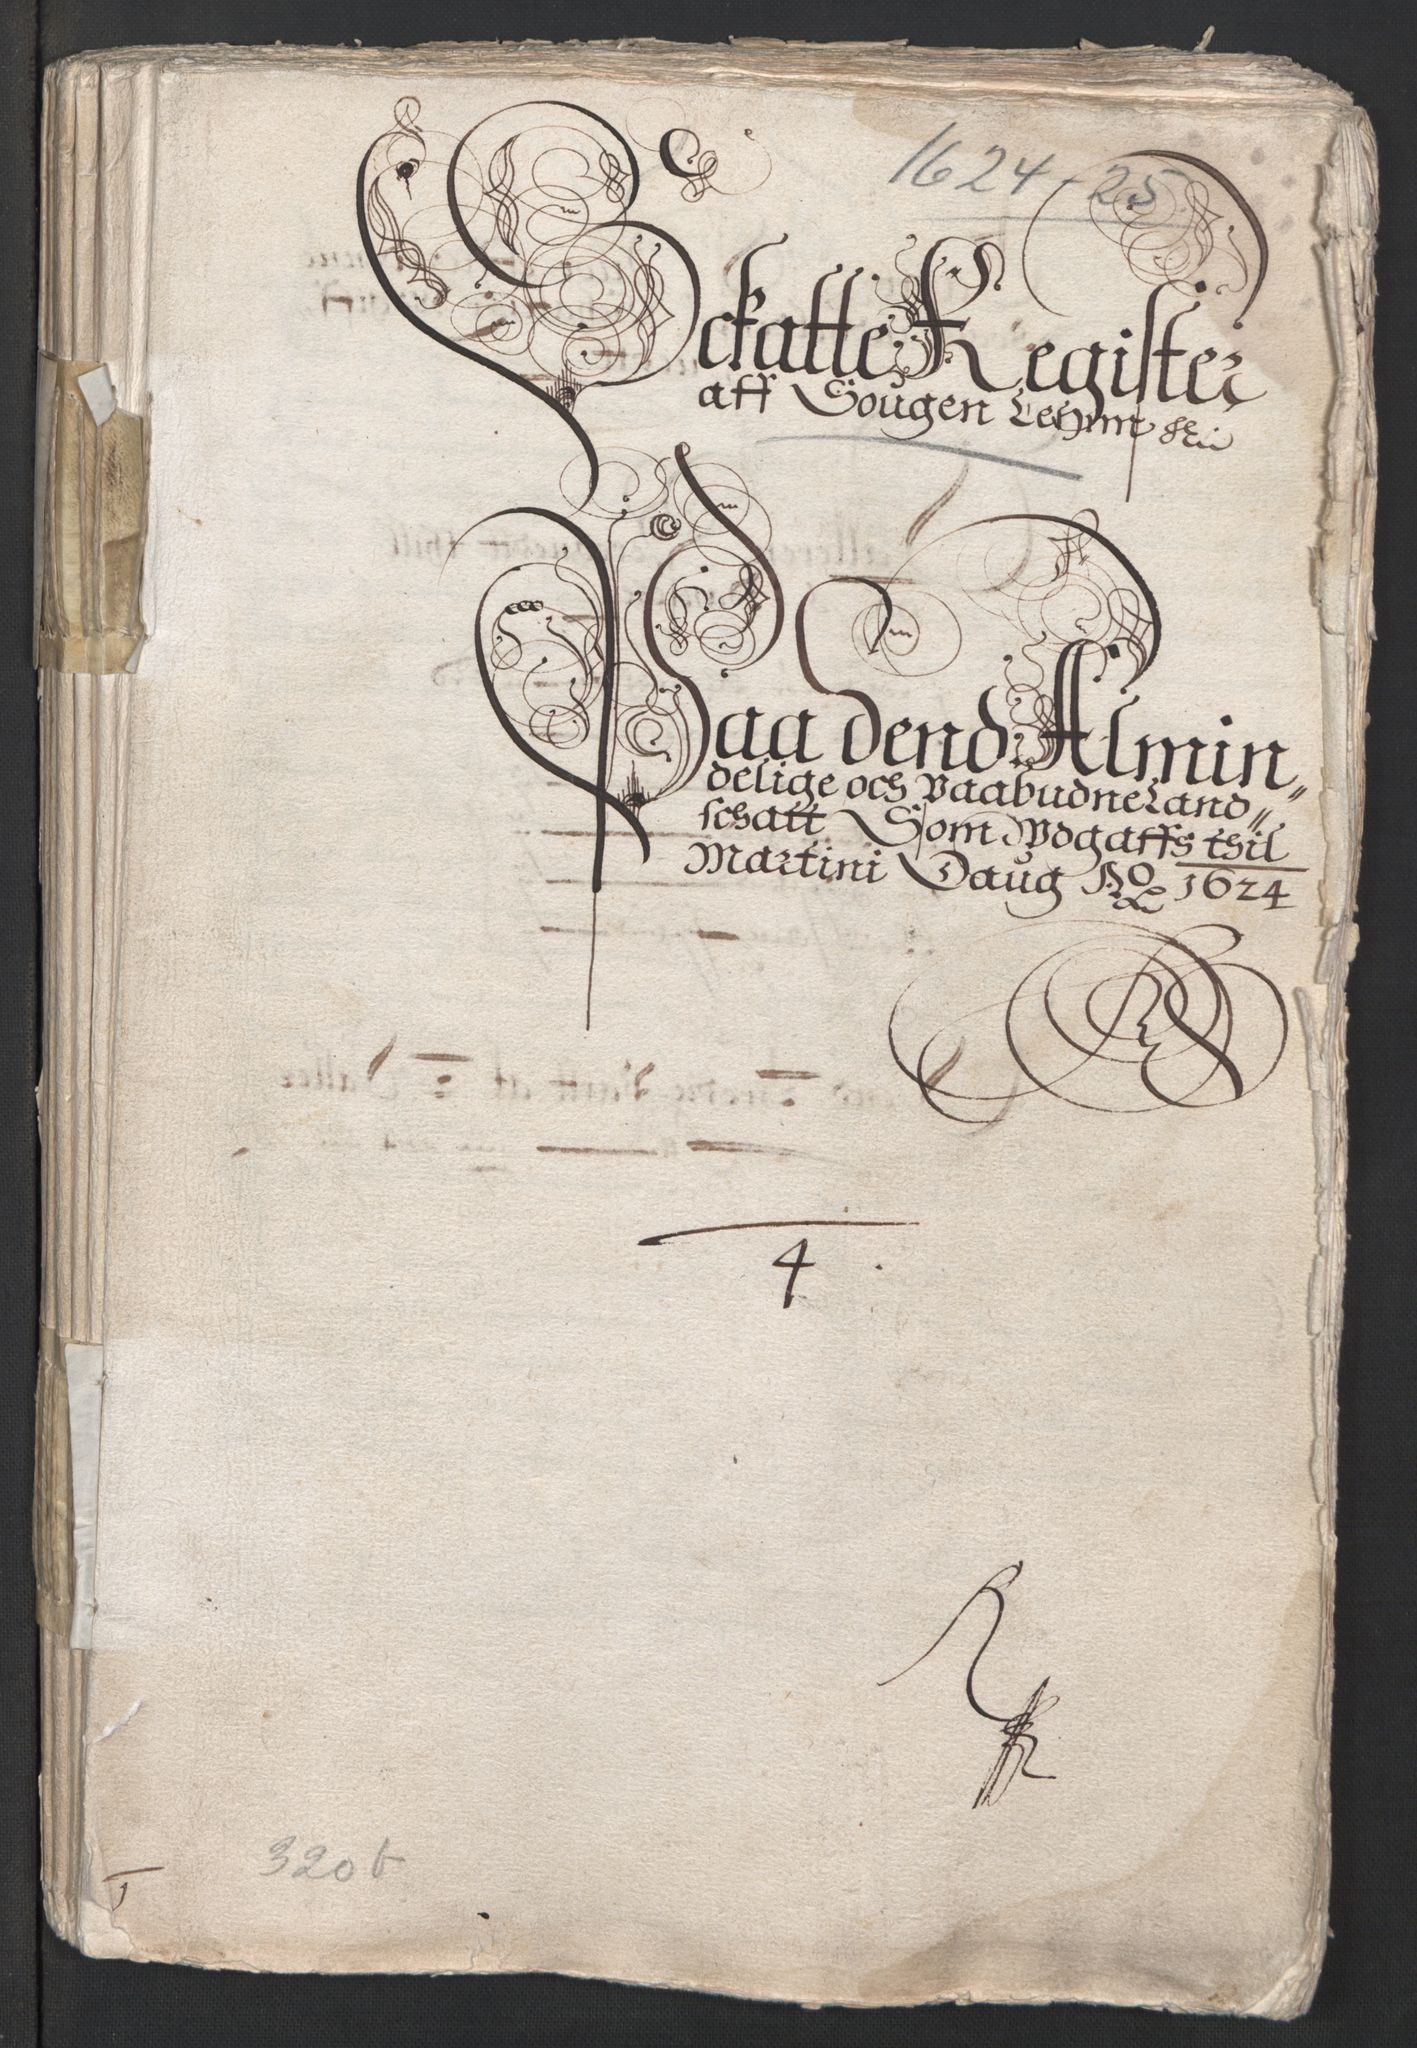 1624-25
Sckatte Register
aff Sougen Lehnn
Paa dend Almin„
delige och Paabudne Land„
schatt Som Wdgaffs thil
Martini Daug Ao 1624
4
320 b
1